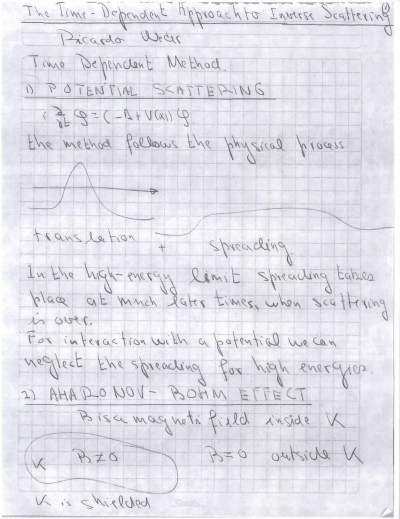 The Time-Dependent Approach to Inverse Scattering
Ricardo Weder
Time Dependent Method.
1) POTENTIAL SCATTERING
i ∂/∂t φ = (-Δ + V(x)) φ
the method follows the physical process
translation + spreading
In the high-energy limit spreading takes
place at much later times, when scattering
is over.
For interaction with a potential we can
neglect the spreading for high energies.
2) AHARONOV-BOHM EFFECT
B is a magnetic field inside K
K B≠0 B=0 outside K
K is shielded